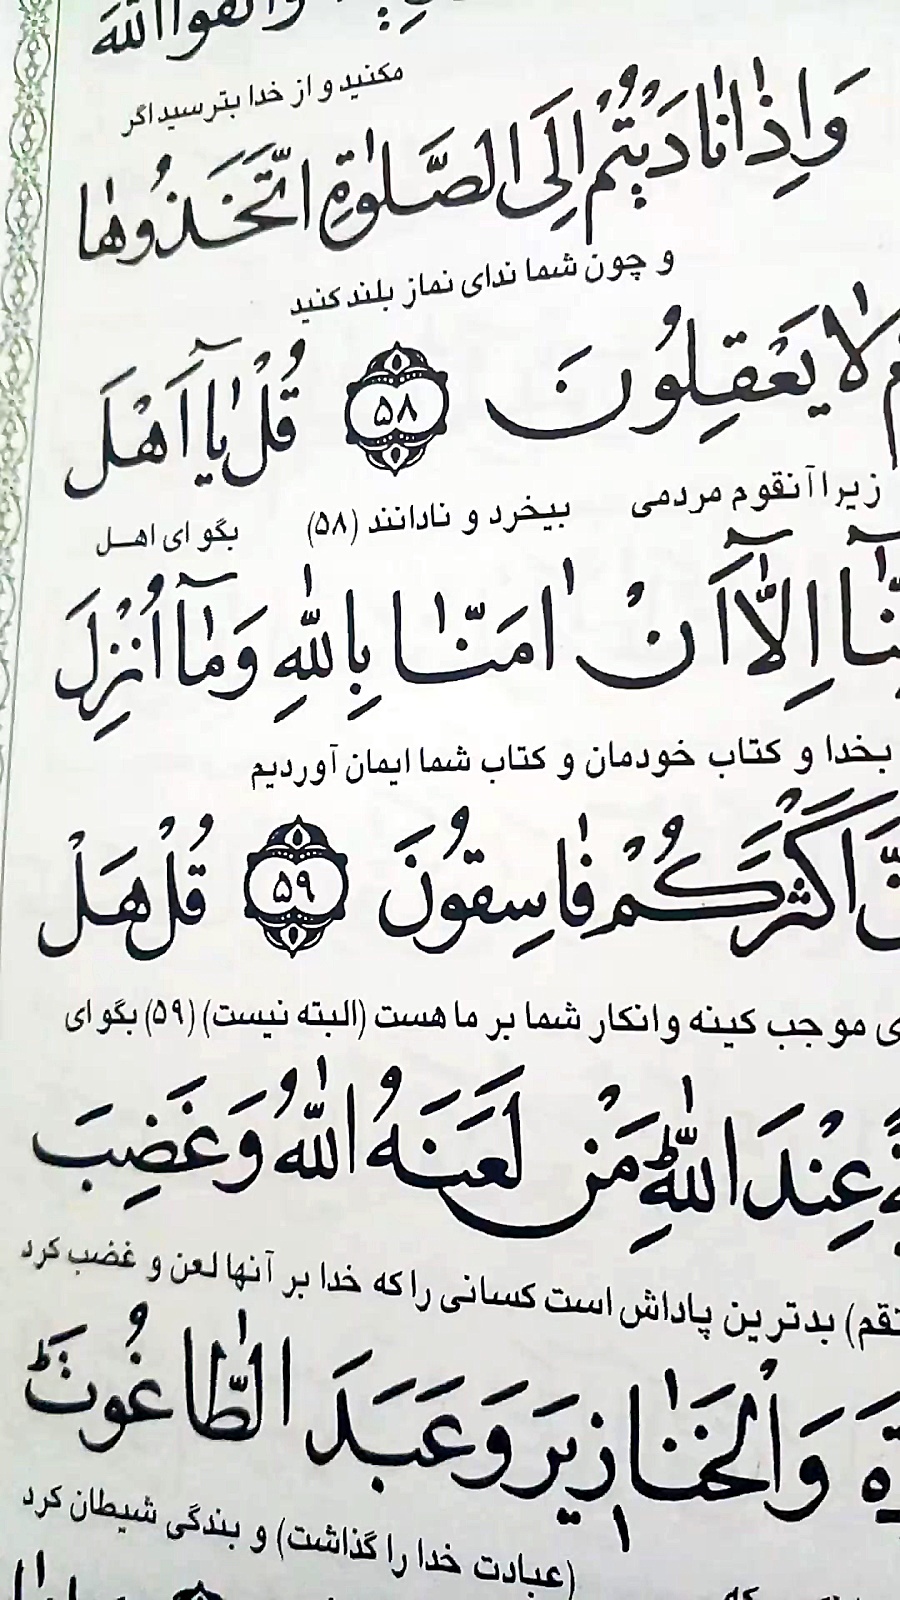 وَاتَّقُوا اللّٰهَ
مکنید و از خدا بترسید اگر
وَاِذٰا نٰادَيْتُمْ اِلَى الصَّلٰوةِ اتَّخَذُوهٰا
و چون شما ندای نماز بلند کنید
لٰا يَعْقِلُونَ ﴿۵۸﴾ قُلْ يٰٓا اَهْلَ
زیرا آنقوم مردمی بیخرد و نادانند (۵۸) بگو ای اهل
اِلّٰٓا اَنْ اٰمَنّٰا بِاللّٰهِ وَمٰٓا اُنْزِلَ
بخدا و کتاب خودمان و کتاب شما ایمان آوردیم
اَكْثَرَكُمْ فٰاسِقُونَ ﴿۵۹﴾ قُلْ هَلْ
موجب کینه و انکار شما بر ما هست (البته نیست) (۵۹) بگو ای
عِنْدَ اللّٰهِؕ مَنْ لَعَنَهُ اللّٰهُ وَغَضِبَ
بدترین پاداش است کسانی را که خدا بر آنها لعن و غضب کرد
وَالْخَنٰازِيرَ وَعَبَدَ الطّٰاغُوتَؕ
(عبادت خدا را گذاشت) و بندگی شیطان کرد
که